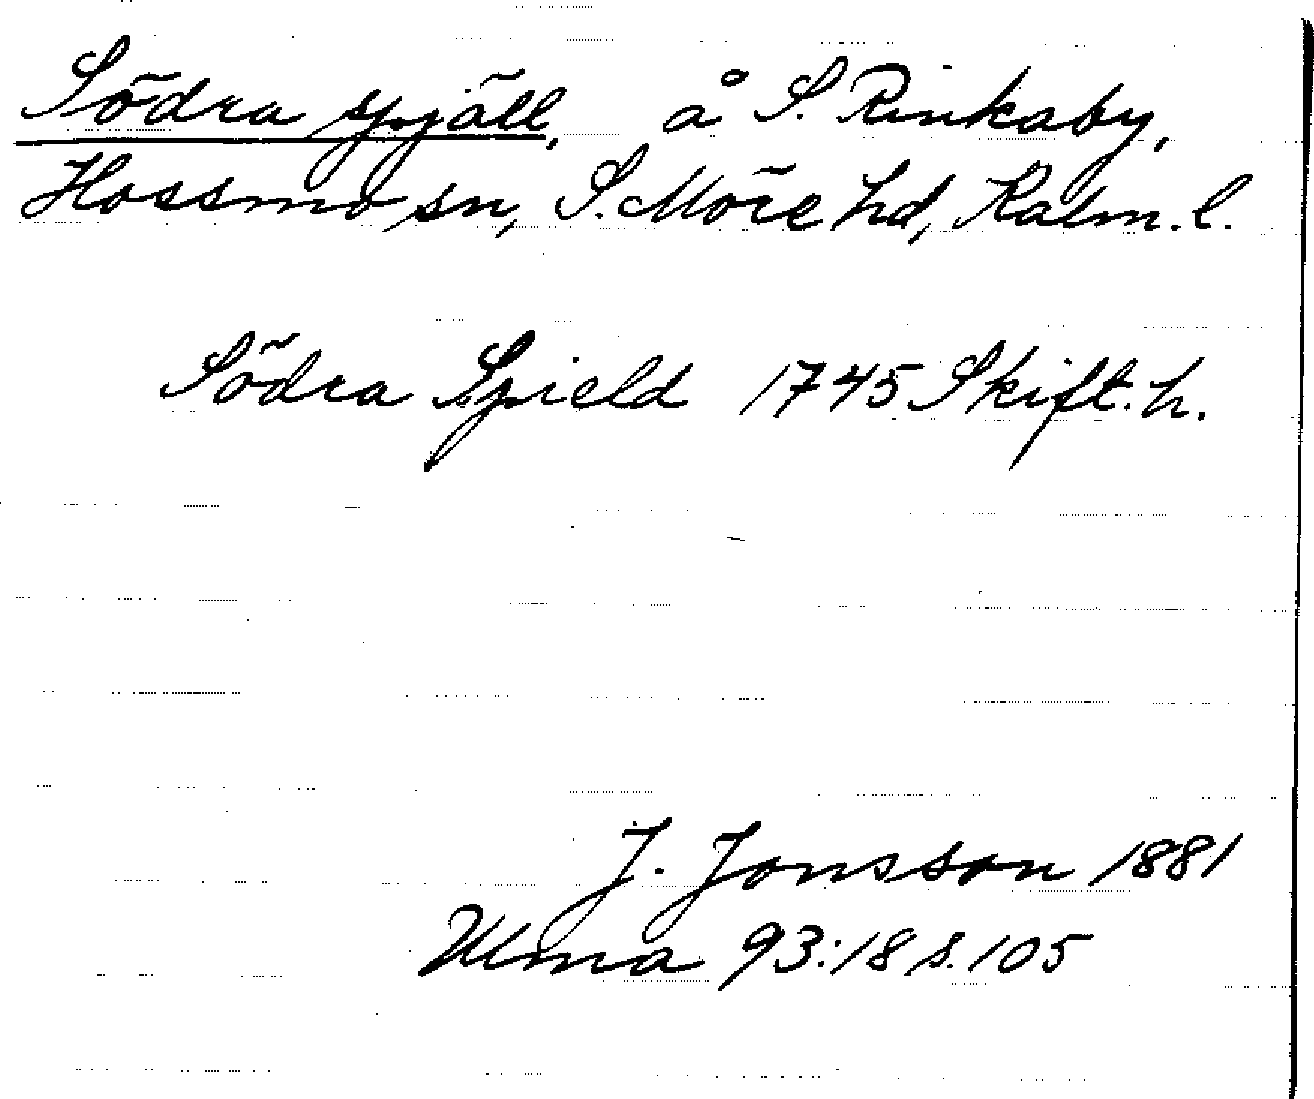 Södra spjäll, å S. Rinkaby,
Hossmo sn, S. Möre hd, Kalm. l.
Södra Spield 1745 Skift. h.
J. Jonsson 1881
Ulma 93:18 s. 105